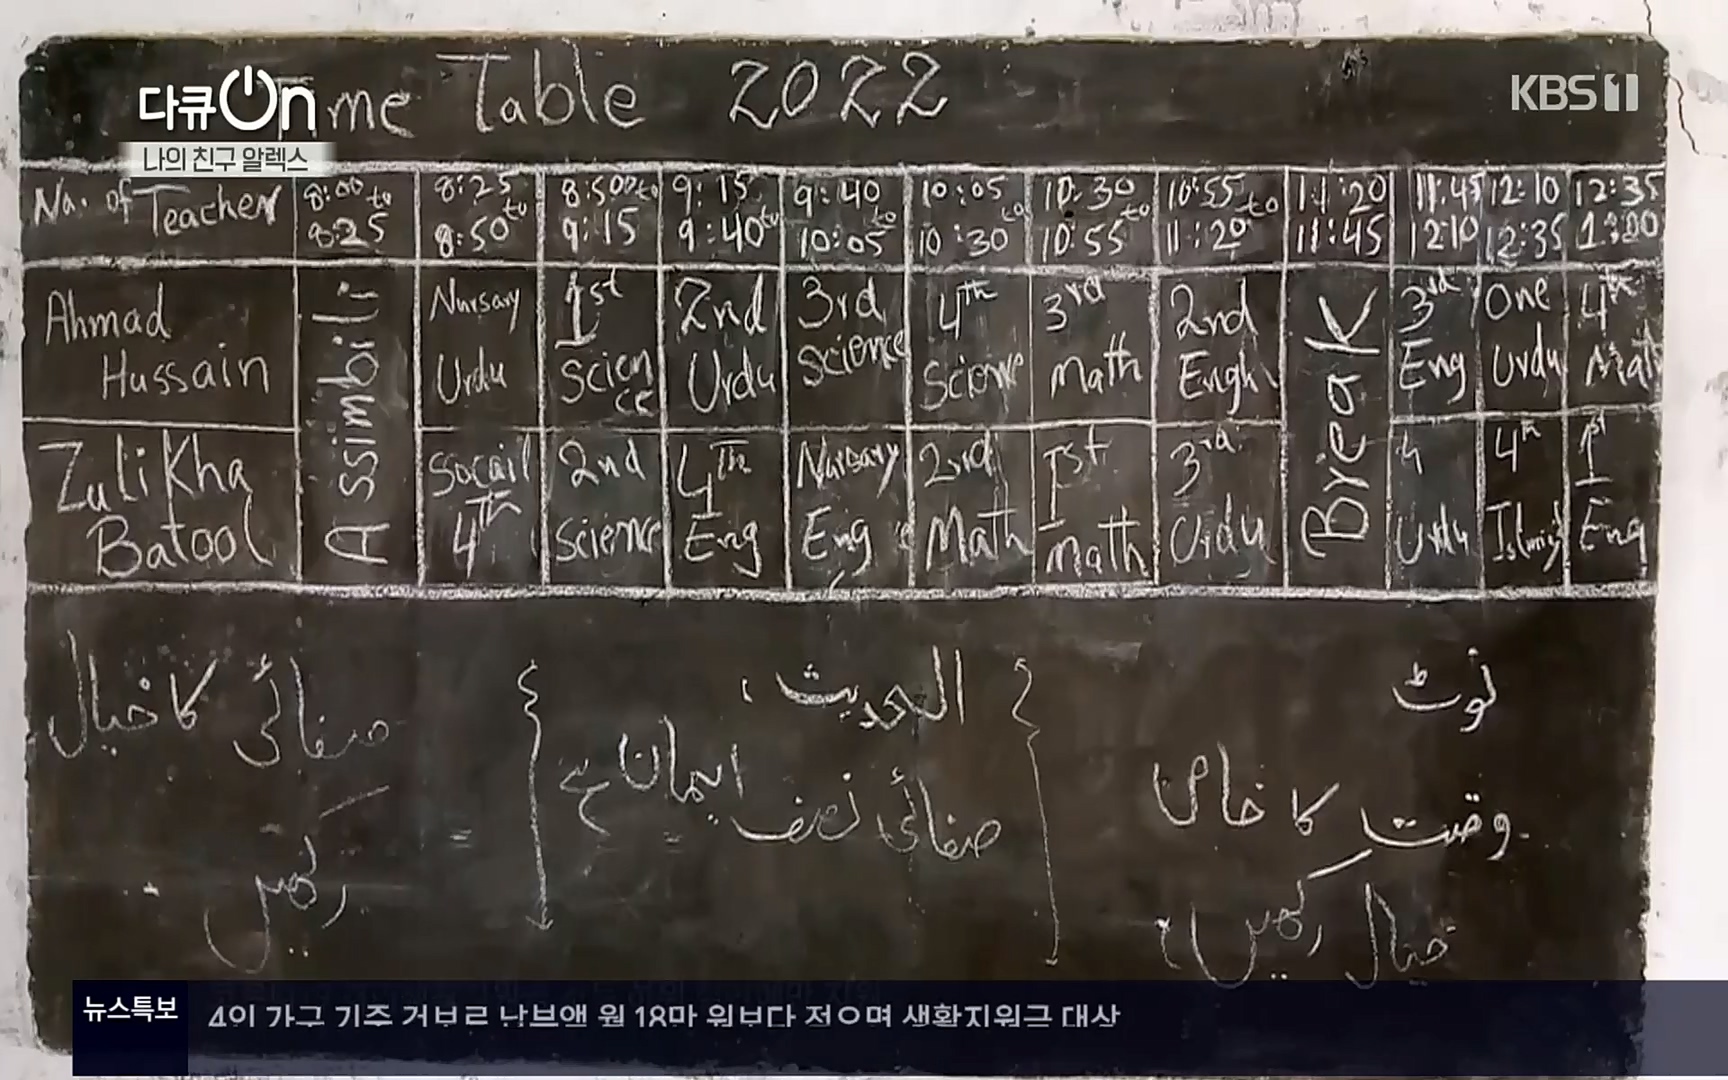 다큐On
나의 친구 알렉스
KBS 1
Time Table 2022
No. of Teacher
8:00 to 8:25
8:25 to 8:50
8:50 to 9:15
9:15 to 9:40
9:40 to 10:05
10:05 to 10:30
10:30 to 10:55
10:55 to 11:20
11:20 11:45
11:45 12:10
12:10 12:35
12:35 1:00
Ahmad Hussain
Assimbili
Nursary Urdu
1st Science
2nd Urdu
3rd Science
4th Science
3rd Math
2nd
Break
3rd Eng
One Urdu
4th Math
Zulikha Batool
Socail 4th
2nd Science
4th Eng
Nursary Eng
2nd Math
1st math
3rd Urdu
4 Urdu
4th
1st Eng
نوٹ
وقت کا خاص
خیال رکھیں
الحدیث
صفائی نصف ایمان ہے
صفائی کا خیال
رکھیں
뉴스특보